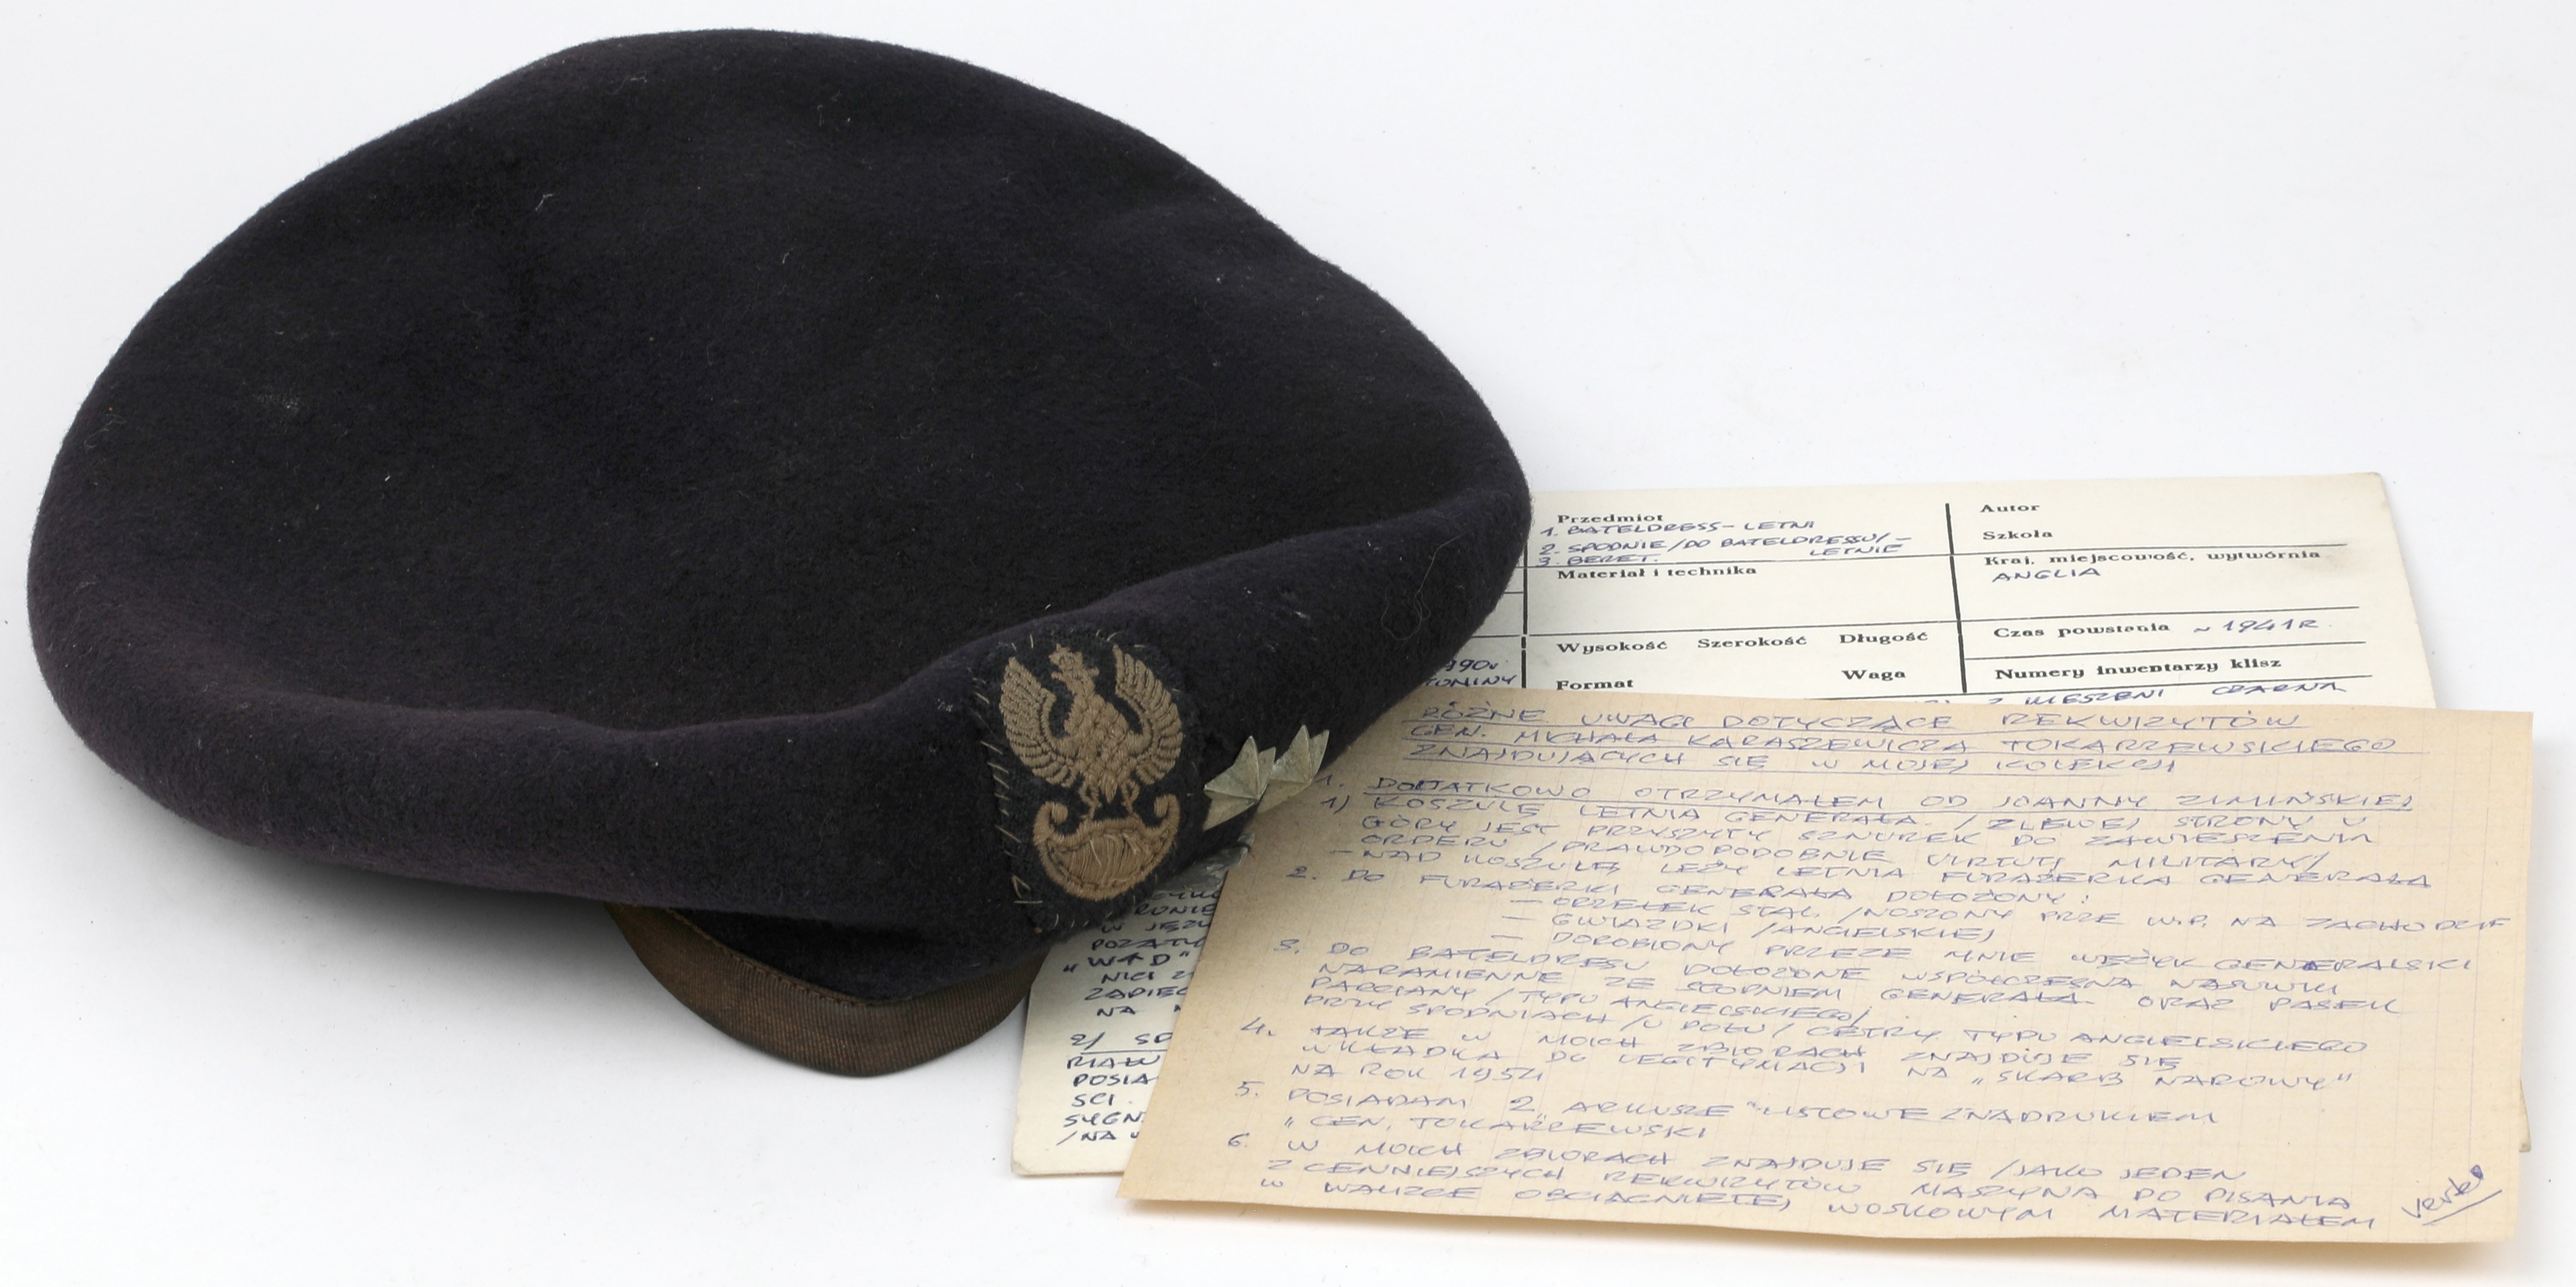 Przedmiot
1. BATELDRESS - LETNI
2. SPODNIE /DO BATELDRESSU/ -
LETNIE
3. BERET.
Materiał i technika
Wysokość Szerokość Długość
Waga
Format
Autor
Szkoła
Kraj, miejscowość, wytwórnia
ANGLIA
Czas powstania ~ 1941 R.
Numery inwentarzy klisz
Z KIESZENI CZARNA
RÓŻNE UWAGI DOTYCZĄCE REKWIZYTÓW
GEN. MICHAŁA KARASZEWICZA TOKARZEWSKIEGO
ZNAJDUJĄCYCH SIĘ W MOJEJ KOLEKCJI
1. DODATKOWO OTRZYMAŁEM OD JOANNY ZIMIŃSKIEJ
1) KOSZULĘ LETNIA GENERAŁA /Z LEWEJ STRONY U
GÓRY JEST PRZYSZYTY SZNUREK DO ZAWIESZENIA
ORDERU /PRAWDOPODOBNIE VIRTUTI MILITARY/
- NAD KOSZULĄ LEŻY LETNIA FURAŻERKA GENERAŁA
2. DO FURAŻERKI GENERAŁA DOŁOŻONY:
- ORZEŁEK STAL. /NOSZONY PRZE W.P. NA ZACHODZIE
- GWIAZDKI /ANGIELSKIE/
- DOROBIONY PRZEZE MNIE WĘŻYK GENERALSKI
3. DO BATELDRESU DOŁOŻONE WSPÓŁCZESNA NASUWKI
NARAMIENNE ZE STOPNIEM GENERAŁA ORAZ PASEK
PARCIANY /TYPU ANGIELSKIEGO/
PRZY SPODNIACH /U DOŁU/ GETRY TYPU ANGIELSKIEGO
4. TAKŻE W MOICH ZBIORACH ZNAJDUJE SIĘ
WKŁADKA DO LEGITYMACJI NA „SKARB NAROWY"
NA ROK 1954
5. POSIADAM 2 „ARKUSZE" LISTOWE Z NADRUKIEM
„GEN. TOKARZEWSKI
6. W MOICH ZBIORACH ZNAJDUJE SIĘ /JAKO JEDEN
Z CENNIEJSZYCH REKWIZYTÓW MASZYNA DO PISANIA
W WALIZCE OBCIĄGNIĘTEJ WOSKOWYM MATERIAŁEM
verte
W JĘZY
POZATY
„W↑D"
NICI
ZAPIĘC
NA
2/ SP
POSIA
SCI.
SYGN
/NA